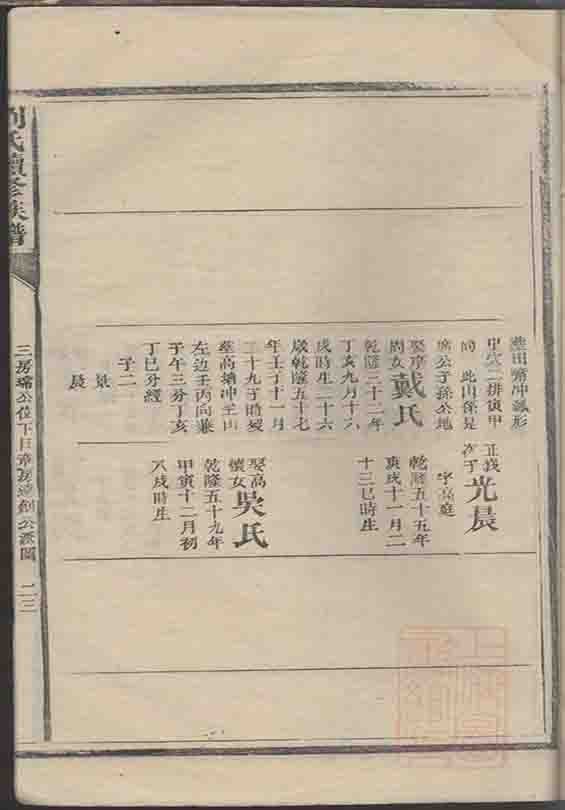 葬田嘴冲獅形
甲穴二排寅甲
向 此山係是
公子孫公地
娶
周女戴氏
乾隆二十二年
丁亥九月十六
戌時生二十六
歲乾隆五十七
年壬子十一月
二十九子時歿
葬高塘冲坐山
左边壬丙向兼
子午三分丁亥
丁巳分經
子二
景
晨
正義
次子光晨
字亮庭
乾隆五十五年
庚戌十一月二
十三巳時生
娶高
懷女吳氏
乾隆五十九年
甲寅十二月初
八戌時生
劉氏續修族譜
三房 公位下日章房 創公派圖
二三
上